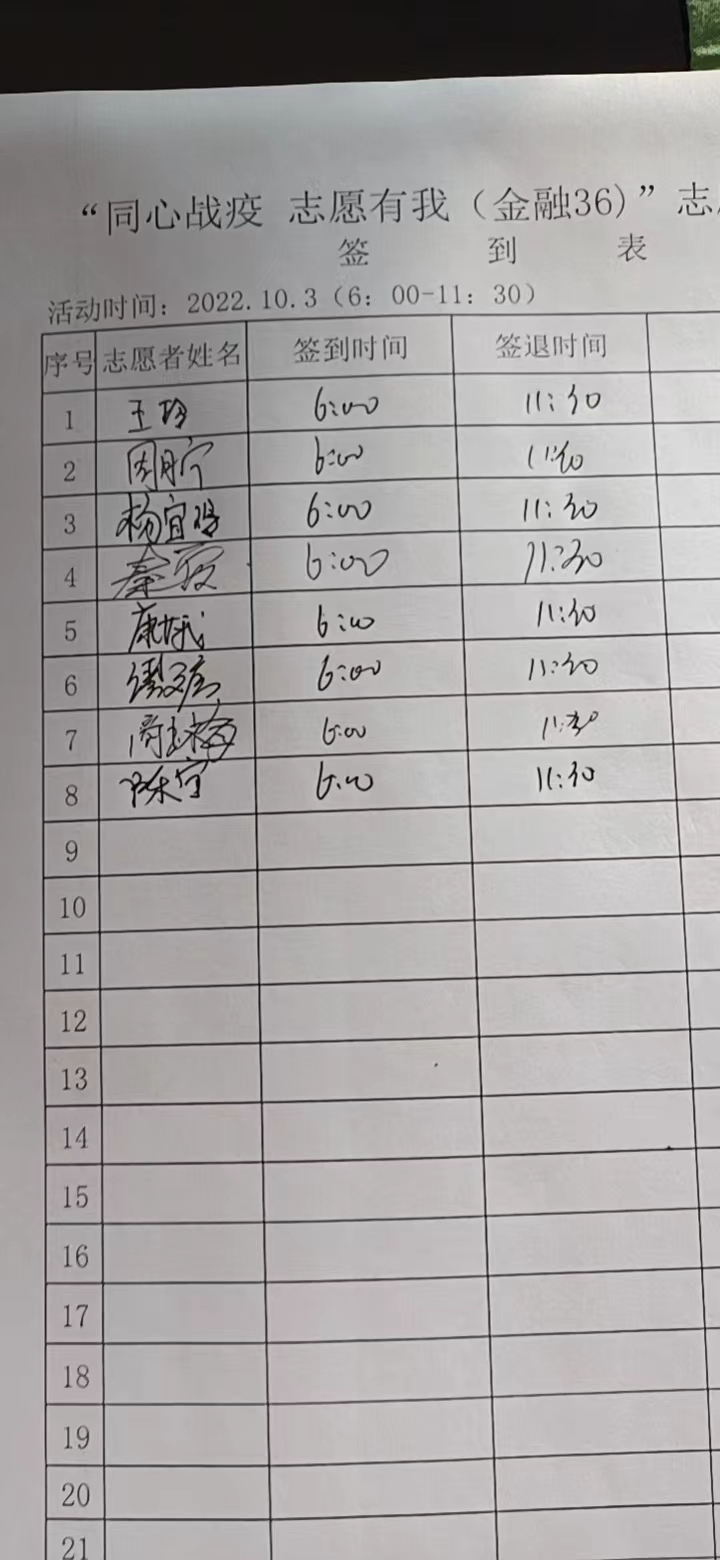 “同心战疫 志愿有我（金融36）”志
签 到 表
活动时间：2022.10.3（6：00-11：30）
序号 志愿者姓名 签到时间 签退时间
1 王玲 6:00 11:30
2 周 6:00 11:30
3 杨宜 6:00 11:30
4 秦 6:00 11:30
5 康 6:00 11:30
6 6:00 11:30
7 梅 6:00 11:30
8 陈宁 6:00 11:30
9
10
11
12
13
14
15
16
17
18
19
20
21